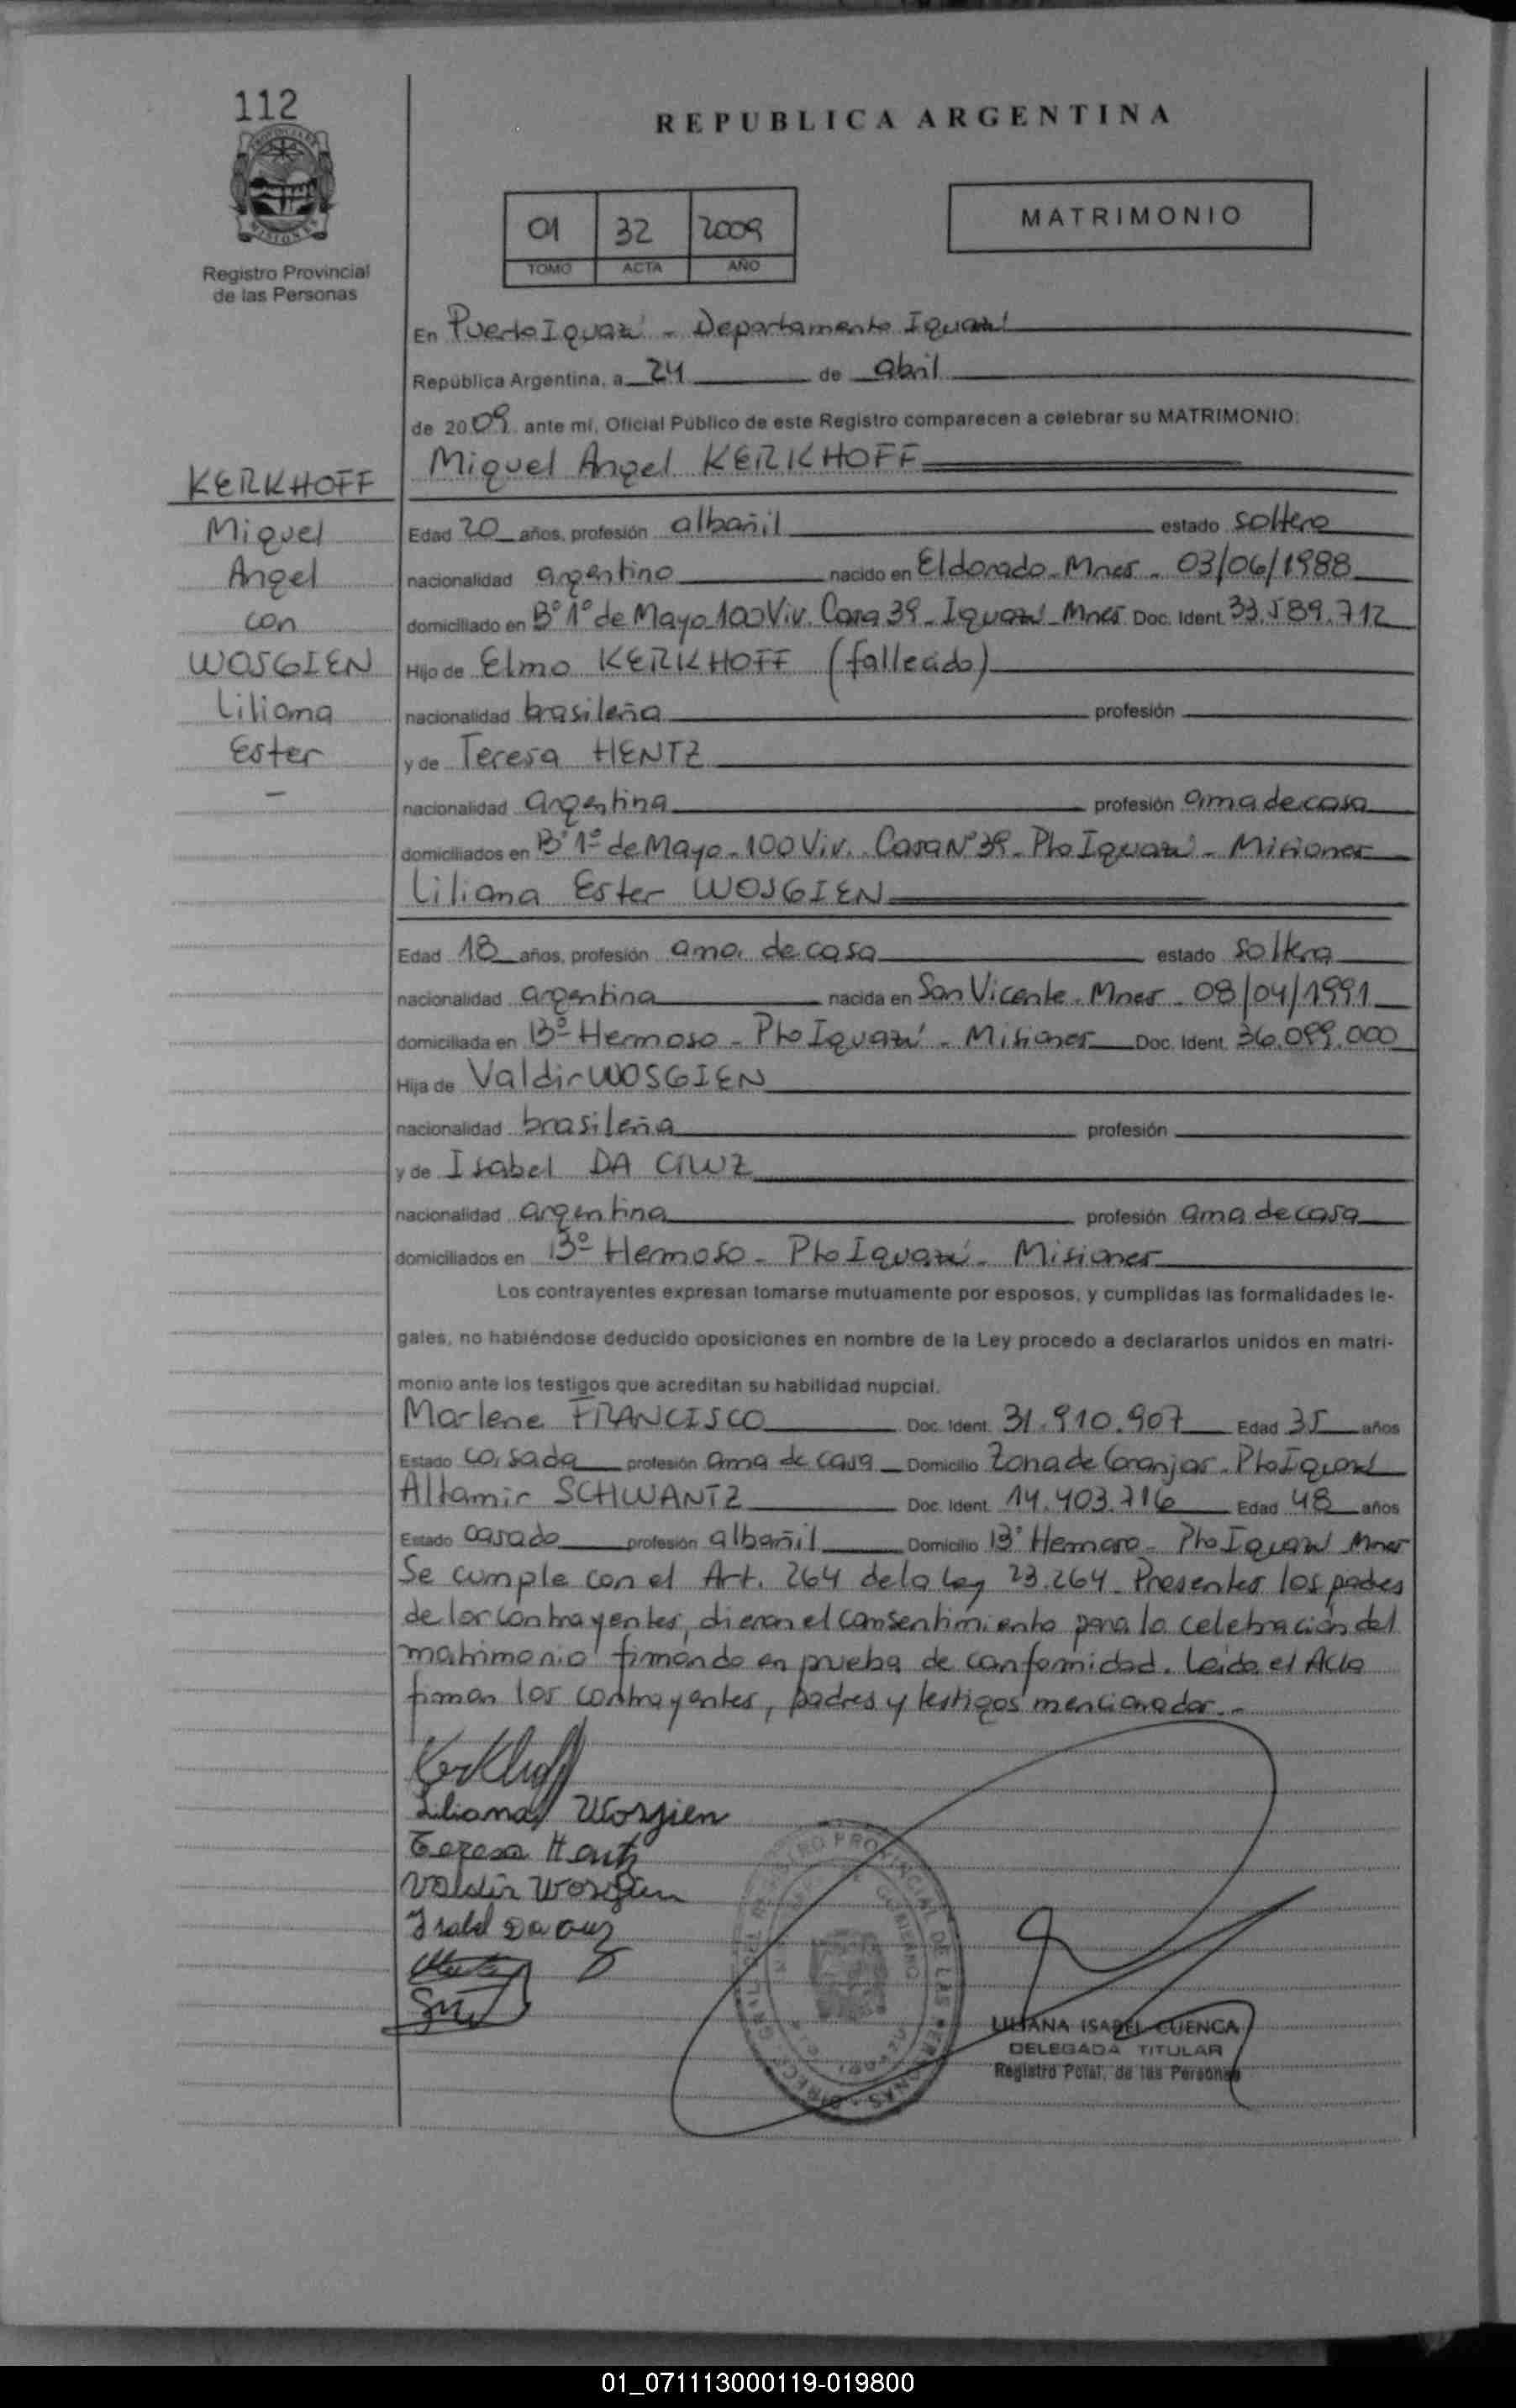 112
REPUBLICA ARGENTINA
01 32 2009
TOMO ACTA AÑO
MATRIMONIO
Registro Provincial
de las Personas
En Puerto Iguazú - Departamento Iguazú
República Argentina, a 24 de abril
de 2009 ante mí, Oficial Público de este Registro comparecen a celebrar su MATRIMONIO:
Miguel Angel KERKHOFF
KERKHOFF
Miguel
Angel
con
WOSGIEN
Liliana
Ester
-
Edad 20 años, profesión albañil estado soltero
nacionalidad argentino nacido en Eldorado - Mnes - 03/06/1988
domiciliado en Bº 1º de Mayo 100 Viv. Casa 39 - Iguazú - Mnes Doc. Ident. 33.589.712
Hijo de Elmo KERKHOFF (fallecido)
nacionalidad brasileña profesión
y de Teresa HENTZ
nacionalidad argentina profesión ama de casa
domiciliados en Bº 1º de Mayo - 100 Viv. Casa Nº 39 - Pto Iguazú - Misiones
Liliana Ester WOSGIEN
Edad 18 años, profesión ama de casa estado soltera
nacionalidad argentina nacida en San Vicente - Mnes - 08/04/1991
domiciliada en Bº Hermoso - Pto Iguazú - Misiones Doc. Ident. 36.099.000
Hija de Valdir WOSGIEN
nacionalidad brasileña profesión
y de Isabel DA CRUZ
nacionalidad argentina profesión ama de casa
domiciliados en Bº Hermoso - Pto Iguazú - Misiones
Los contrayentes expresan tomarse mutuamente por esposos, y cumplidas las formalidades le-
gales, no habiéndose deducido oposiciones en nombre de la Ley procedo a declararlos unidos en matri-
monio ante los testigos que acreditan su habilidad nupcial.
Marlene FRANCISCO Doc. Ident. 31.910.907 Edad 35 años
Estado casada profesión ama de casa Domicilio Zona de Granjas - Pto Iguazú
Altamir SCHWANTZ Doc. Ident. 14.403.716 Edad 48 años
Estado casado profesión albañil Domicilio Bº Hermoso - Pto Iguazú Mnes
Se cumple con el Art. 264 de la Ley 23.264 - Presentes los padres
de los contrayentes, dieron el consentimiento para la celebración del
matrimonio firmando en prueba de conformidad. Leída el Acta
firman los contrayentes, padres y testigos mencionados.-
Kerkhoff
Liliana Wosgien
Teresa Hentz
Valdir Wosgien
Isabel Da Cruz
LILIANA ISABEL CUENCA
DELEGADA TITULAR
Registro Pcial. de las Personas
01_071113000119-019800